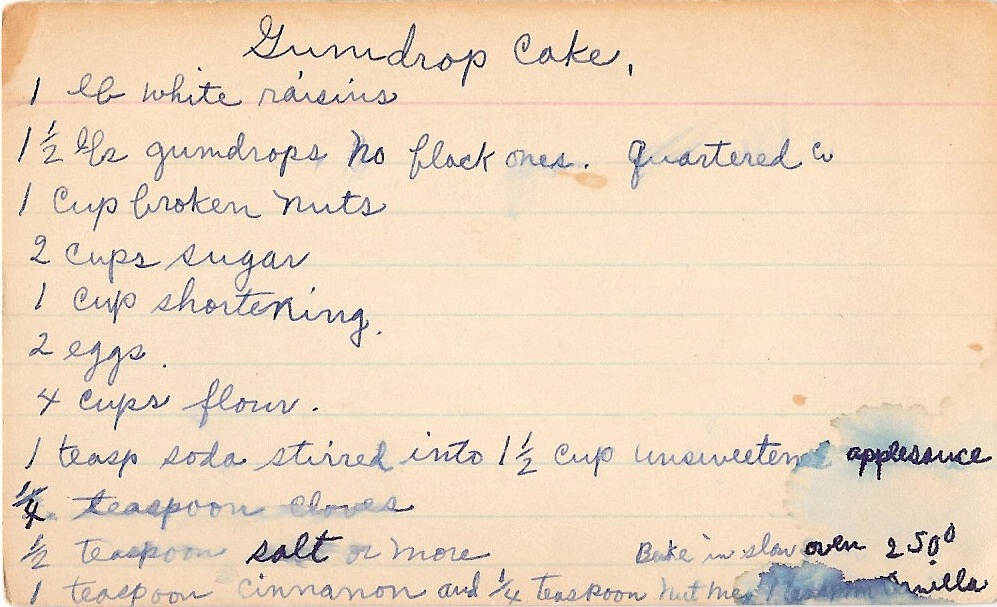 Gumdrop Cake,
1 lb white raisins
1 1/2 lbs gumdrops No black ones. Quartered
1 Cup broken nuts
2 cups sugar
1 cup shortening.
2 eggs.
4 cups flour.
1 teasp soda stirred into 1 1/2 cup unsweetened applesauce
1/4 teaspoon cloves
1/2 teaspoon salt or more Bake in slow oven 250°
1 teaspoon Cinnanon and 1/4 teaspoon nutmeg 1 teaspoon vanilla